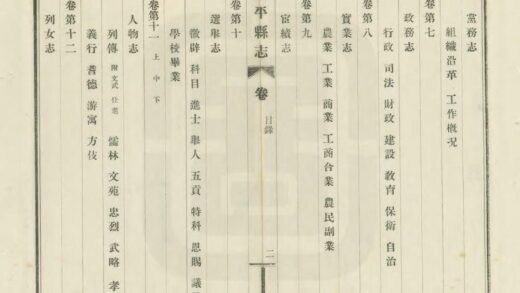 黨務志
組織沿革 工作概況
卷第七
政務志
行政 司法 財政 建設 敎育 保衛 自治
卷第八
實業志
農業 工業 商業 工商合業 農民副業
卷第九
宦績志
平縣志 卷 目錄 二
卷第十
選舉志
徵辟 科目 進士 舉人 五貢 特科 恩賜 議
學校畢業
卷第十一 上 中 下
人物志
列傳 附文武仕進 儒林 文苑 忠烈 武略 孝
義行 耆德 游寓 方伎
卷第十二
列女志